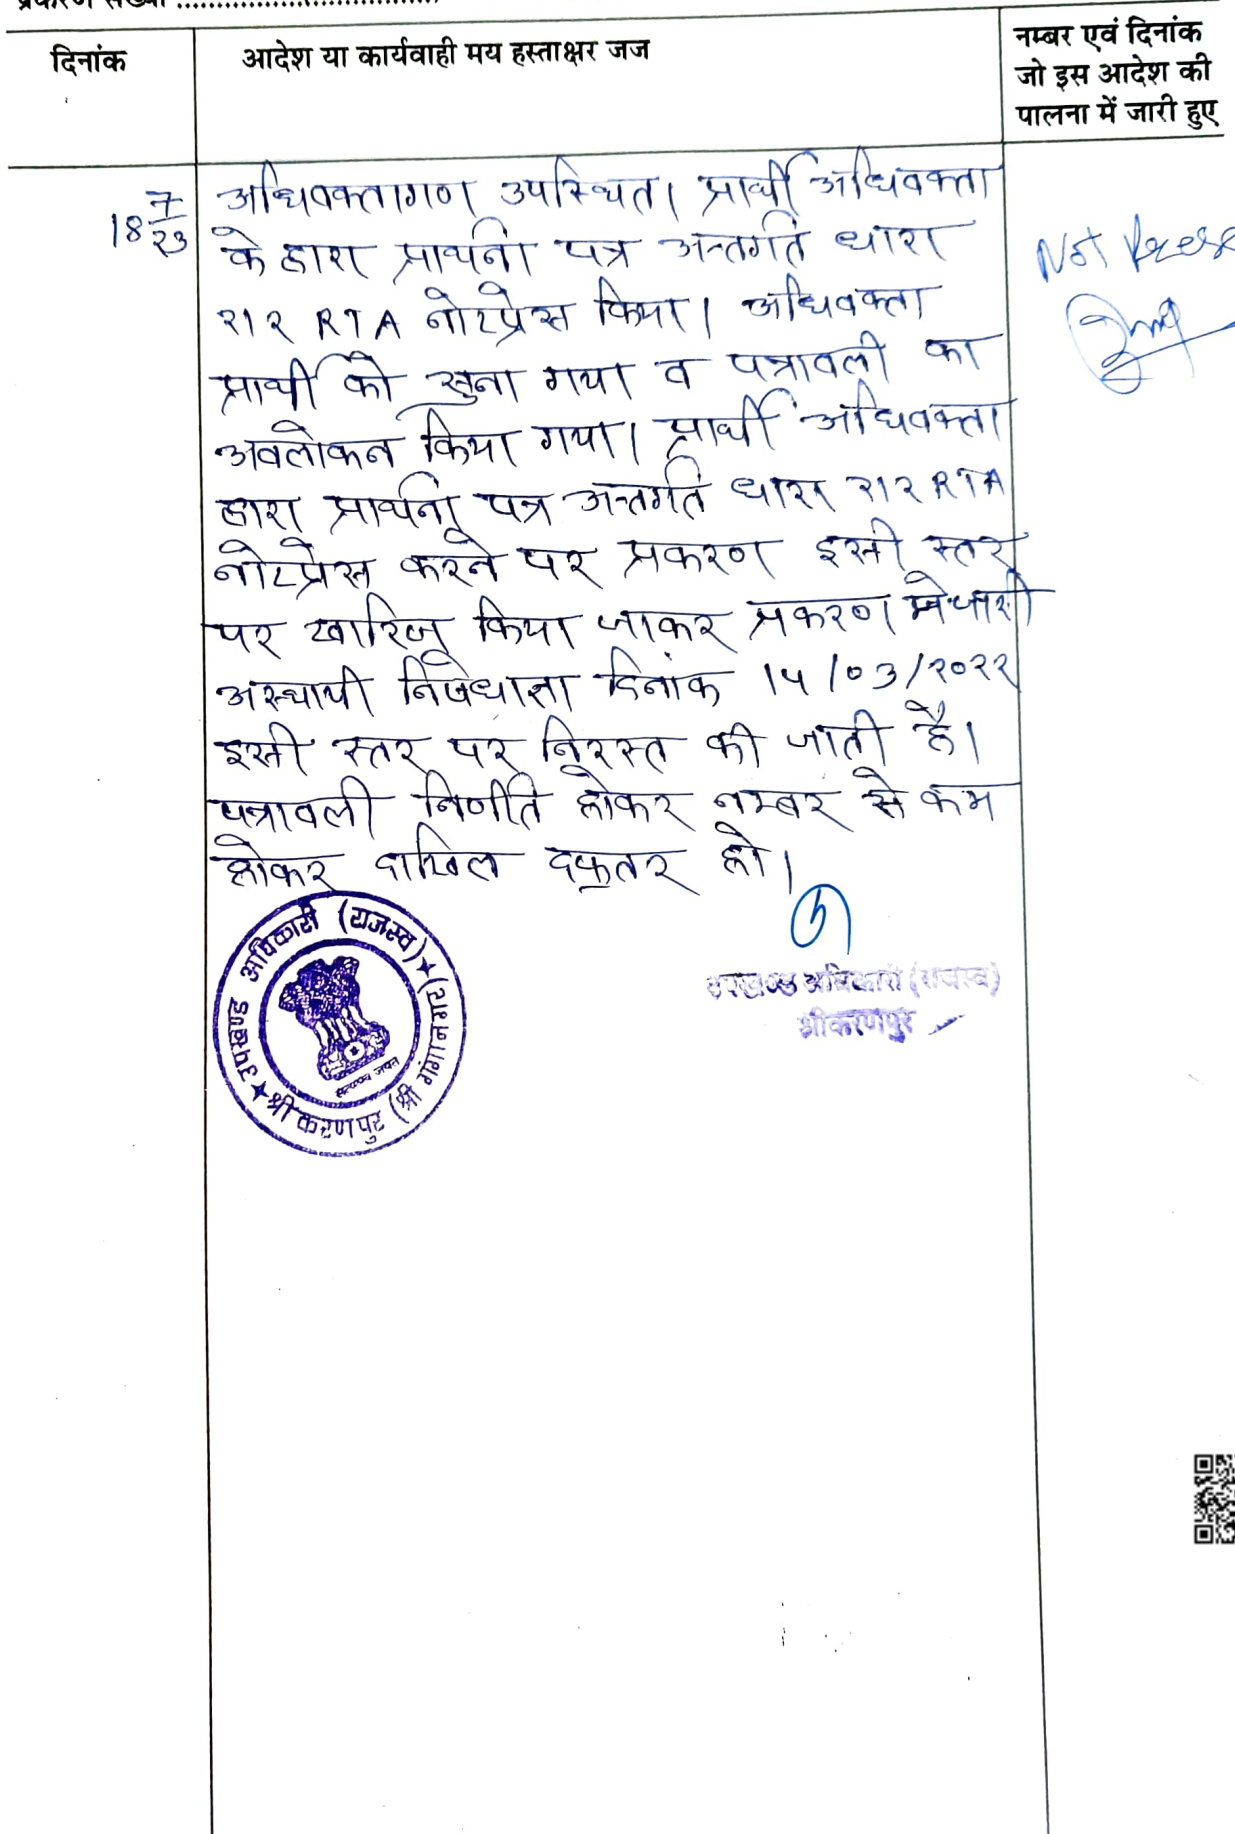 प्रकरण संख्या
दिनांक
आदेश या कार्यवाही मय हस्ताक्षर जज
नम्बर एवं दिनांक
जो इस आदेश की
पालना में जारी हुए
18 7/23
अधिवक्तागण उपस्थित। प्रार्थी अधिवक्ता
के द्वारा प्रार्थना पत्र अन्तर्गत धारा
२१२ RTA नोटप्रेस किया। अधिवक्ता
प्रार्थी को सुना गया व पत्रावली का
अवलोकन किया गया। प्रार्थी अधिवक्ता
द्वारा प्रार्थना पत्र अन्तर्गत धारा २१२ RTA
नोटप्रेस करने पर प्रकरण इसी स्तर
पर खारिज किया जाकर प्रकरण मे जारी
अस्थायी निषेधाज्ञा दिनांक 14/03/२०२२
इसी स्तर पर निरस्त की जाती है।
पत्रावली निर्णीत होकर नम्बर से कम
होकर दाखिल दफ्तर हो।
Not Press
उपखण्ड अधिकारी (राजस्व)
श्रीकरणपुर
उपखण्ड अधिकारी (राजस्व)
श्री करणपुर (श्री गंगानगर)
सत्यमेव जयते